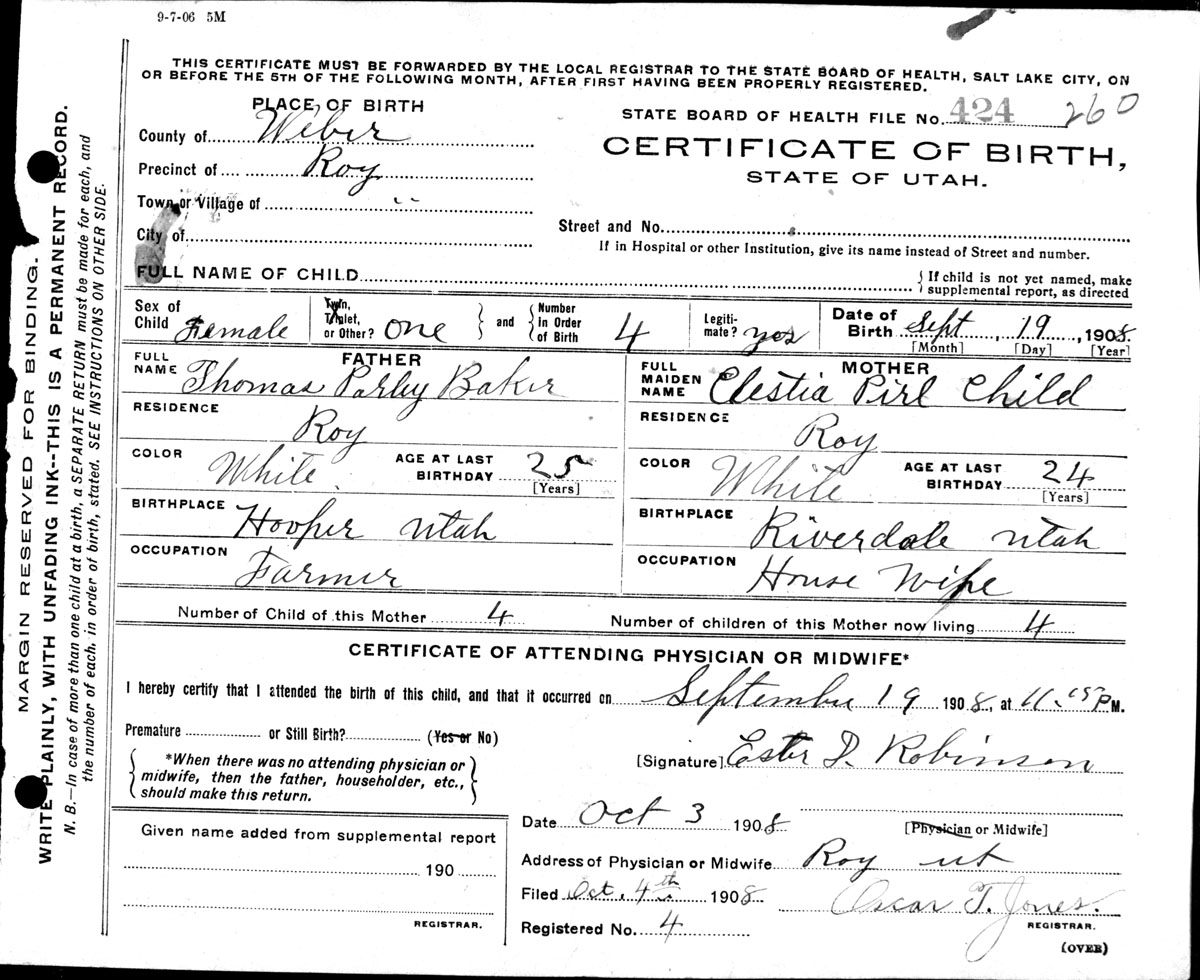 9-7-06 5M
THIS CERTIFICATE MUST BE FORWARDED BY THE LOCAL REGISTRAR TO THE STATE BOARD OF HEALTH, SALT LAKE CITY, ON
OR BEFORE THE 5TH OF THE FOLLOWING MONTH, AFTER FIRST HAVING BEEN PROPERLY REGISTERED.
MARGIN RESERVED FOR BINDING.
WRITE PLAINLY, WITH UNFADING INK--THIS IS A PERMANENT RECORD.
N. B.—In case of more than one child at a birth, a SEPARATE RETURN must be made for each, and
the number of each, in order of birth, stated. SEE INSTRUCTIONS ON OTHER SIDE.
PLACE OF BIRTH
County of Weber
Precinct of Roy
Town or Village of "
City of
STATE BOARD OF HEALTH FILE No. 424 260
CERTIFICATE OF BIRTH,
STATE OF UTAH.
Street and No.
If in Hospital or other Institution, give its name instead of Street and number.
FULL NAME OF CHILD
{ If child is not yet named, make
supplemental report, as directed
Sex of Child Female
Twin, Triplet, or Other? one
and
Number in Order of Birth 4
Legitimate? yes
Date of Birth Sept, 19, 1908.
[Month] [Day] [Year]
FATHER
FULL NAME Thomas Parley Baker
RESIDENCE Roy
COLOR White. AGE AT LAST BIRTHDAY 25
[Years]
BIRTHPLACE Hooper Utah
OCCUPATION Farmer
MOTHER
FULL MAIDEN NAME Elestia Pirl Child
RESIDENCE Roy
COLOR White AGE AT LAST BIRTHDAY 24
[Years]
BIRTHPLACE Riverdale Utah
OCCUPATION House Wife
Number of Child of this Mother 4 Number of children of this Mother now living 4
CERTIFICATE OF ATTENDING PHYSICIAN OR MIDWIFE*
I hereby certify that I attended the birth of this child, and that it occurred on September 19 1908, at 11.15 P.M.
Premature or Still Birth? (Yes or No)
*When there was no attending physician or
midwife, then the father, householder, etc.,
should make this return.
[Signature] Ester D. Robinson
Date Oct 3 1908
[Physician or Midwife]
Address of Physician or Midwife Roy ut
Filed Oct. 4th 1908 Oscar T. Jones.
REGISTRAR.
Registered No. 4
(OVER)
Given name added from supplemental report
190
REGISTRAR.